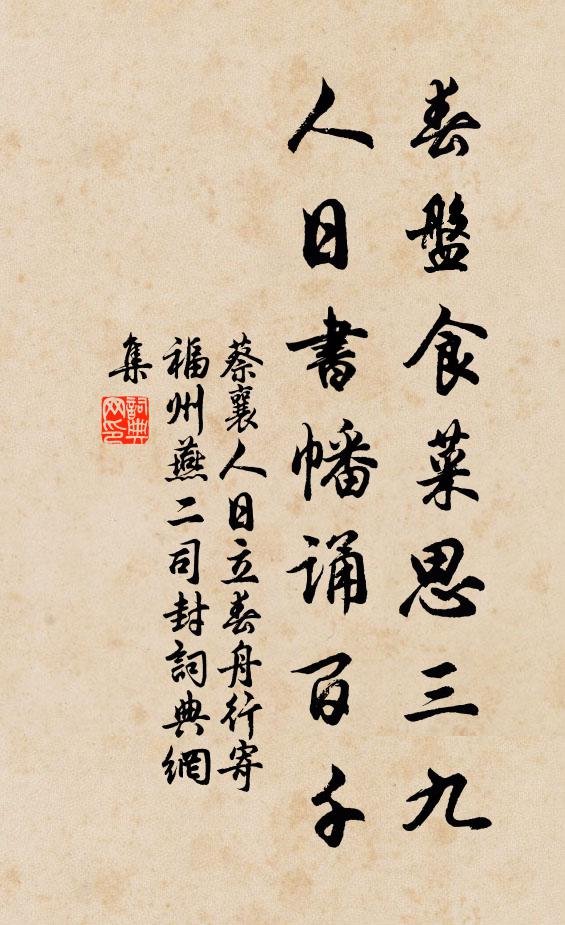 春盤食菜思三九
人日書幡誦百千
蔡襄人日立春舟行寄
福州燕二司封詞典網
集
詞典网印